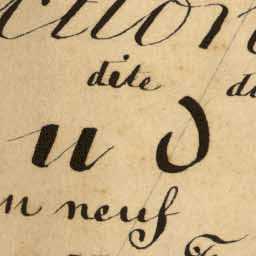 ction
dite d
u d
n neuf